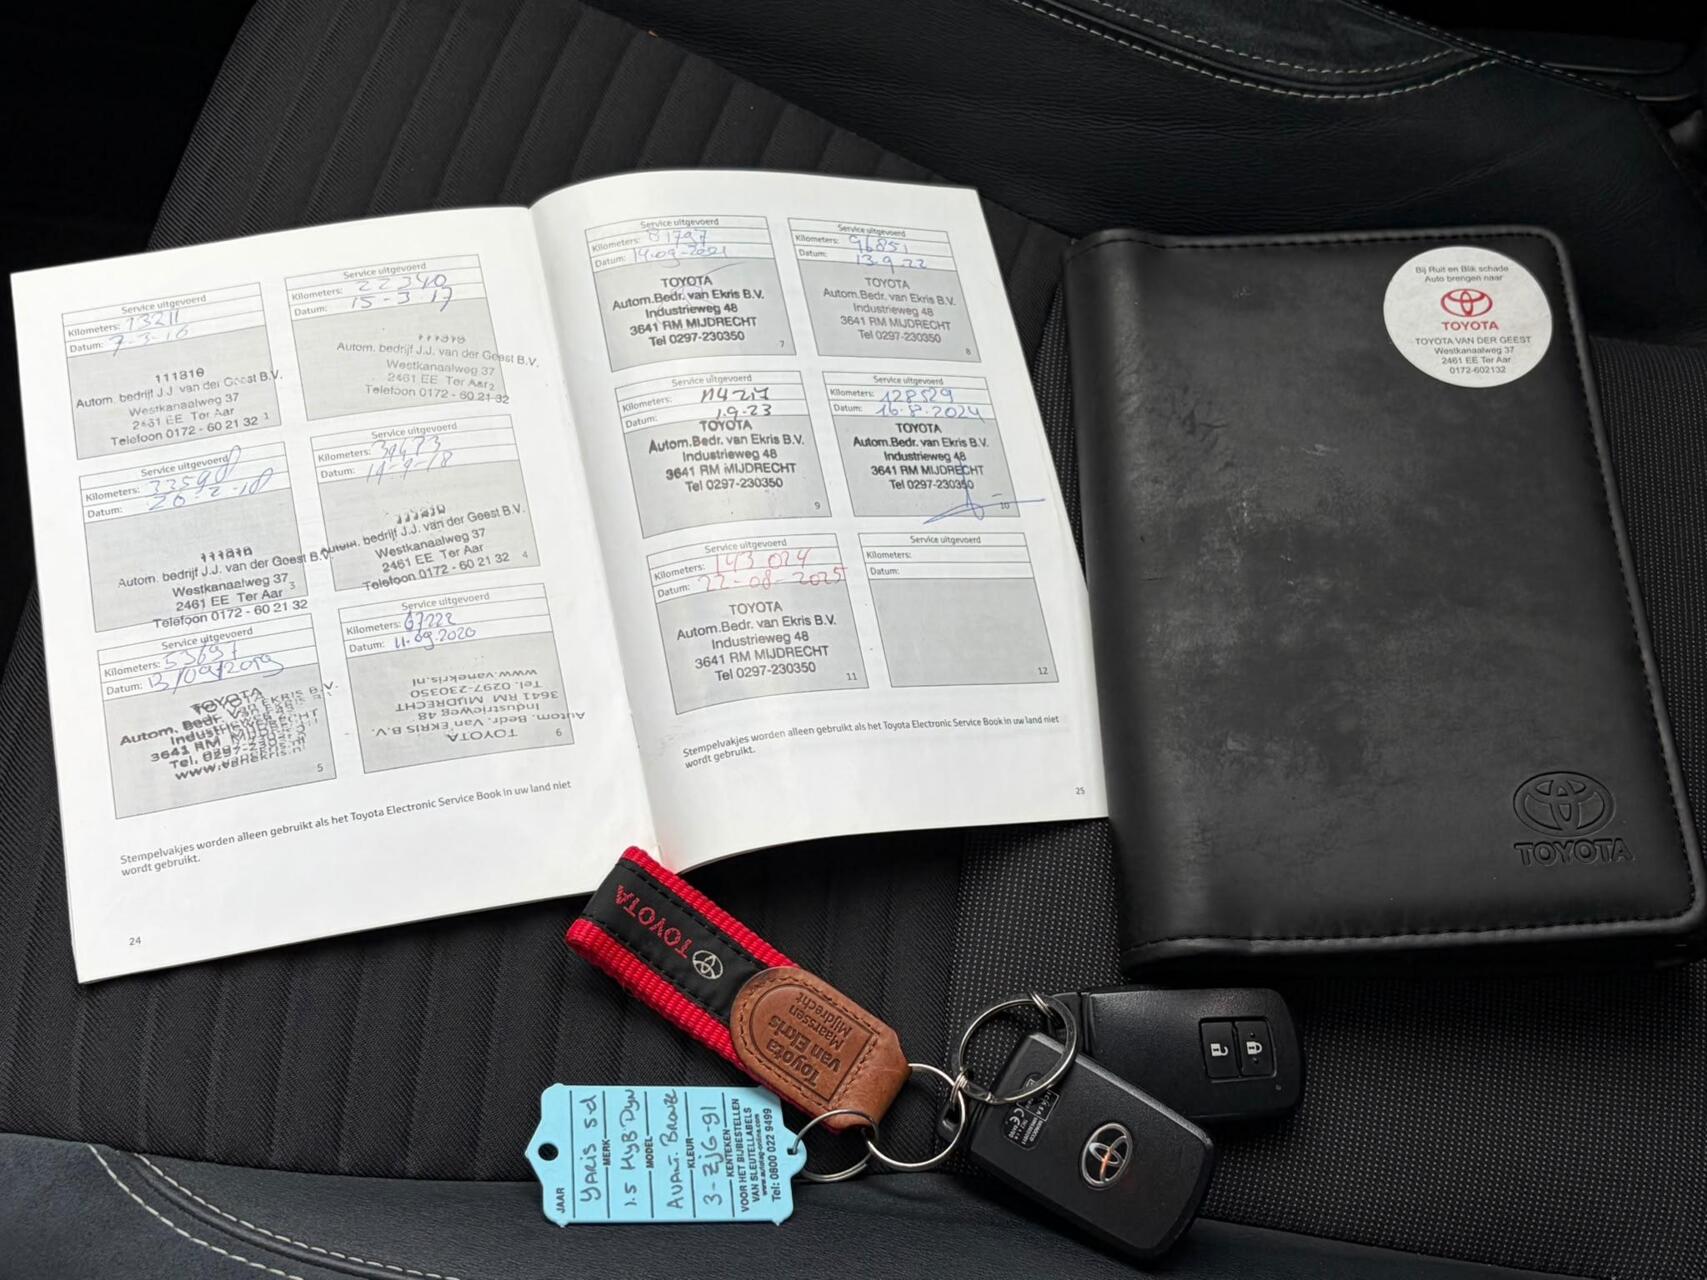 Service uitgevoerd
Kilometers: 13211
Datum: 7-3-16
111310
Autom. bedrijf J.J. van der Geest B.V.
Westkanaalweg 37
2461 EE Ter Aar
Telefoon 0172 - 60 21 32
1
Service uitgevoerd
Kilometers: 22340
Datum: 15-3-17
Autom. bedrijf J.J. van der Geest B.V.
Westkanaalweg 37
2461 EE Ter Aar
2
Telefoon 0172 - 60 21 32
Service uitgevoerd
Kilometers:
Datum:
Autom. bedrijf J.J. van der Geest B.V.
Westkanaalweg 37
3
2461 EE Ter Aar
Telefoon 0172 - 60 21 32
Service uitgevoerd
Kilometers: 39473
Datum:
Autom. bedrijf J.J. van der Geest B.V.
Westkanaalweg 37
2461 EE Ter Aar
4
Telefoon 0172 - 60 21 32
Service uitgevoerd
Kilometers: 53697
Datum: 13/09/2019
TOYOTA
Autom. Bedr. Van EKRIS B.V.
Industrieweg 48
3641 RM MIJDRECHT
Tel. 0297-230350
www.vanekris.nl
5
Service uitgevoerd
Kilometers: 67222
Datum: 11-09-2020
TOYOTA
Autom. Bedr. Van EKRIS B.V.
Industrieweg 48
3641 RM MIJDRECHT
Tel. 0297-230350
www.vanekris.nl
6
Stempelvakjes worden alleen gebruikt als het Toyota Electronic Service Book in uw land niet
wordt gebruikt.
24
Service uitgevoerd
Kilometers: 81797
Datum: 14-09-2021
TOYOTA
Autom.Bedr. van Ekris B.V.
Industrieweg 48
3641 RM MIJDRECHT
Tel 0297-230350
7
Service uitgevoerd
Kilometers: 96851
Datum: 13-9-22
TOYOTA
Autom.Bedr. van Ekris B.V.
Industrieweg 48
3641 RM MIJDRECHT
Tel 0297-230350
8
Service uitgevoerd
Kilometers: 114217
Datum: 1-9-23
TOYOTA
Autom.Bedr. van Ekris B.V.
Industrieweg 48
3641 RM MIJDRECHT
Tel 0297-230350
9
Service uitgevoerd
Kilometers: 128529
Datum: 16-8-2024
TOYOTA
Autom.Bedr. van Ekris B.V.
Industrieweg 48
3641 RM MIJDRECHT
Tel 0297-230350
10
Service uitgevoerd
Kilometers: 143 024
Datum: 22-08-2025
TOYOTA
Autom.Bedr. van Ekris B.V.
Industrieweg 48
3641 RM MIJDRECHT
Tel 0297-230350
11
Service uitgevoerd
Kilometers:
Datum:
12
Stempelvakjes worden alleen gebruikt als het Toyota Electronic Service Book in uw land niet
wordt gebruikt.
25
Bij Ruit en Blik schade
Auto brengen naar
TOYOTA
TOYOTA VAN DER GEEST
Westkanaalweg 37
2461 EE Ter Aar
0172-602132
TOYOTA
TOYOTA
Toyota
van Ekris
Maarssen
Mijdrecht
JAAR
YARIS 5d
MERK
1.5 HYB Dyn
MODEL
AVANT. BRONZE
KLEUR
3-ZJG-91
KENTEKEN
VOOR HET BIJBESTELLEN
VAN SLEUTELLABELS
www.autotag-online.com
Tel: 0800 022 9499